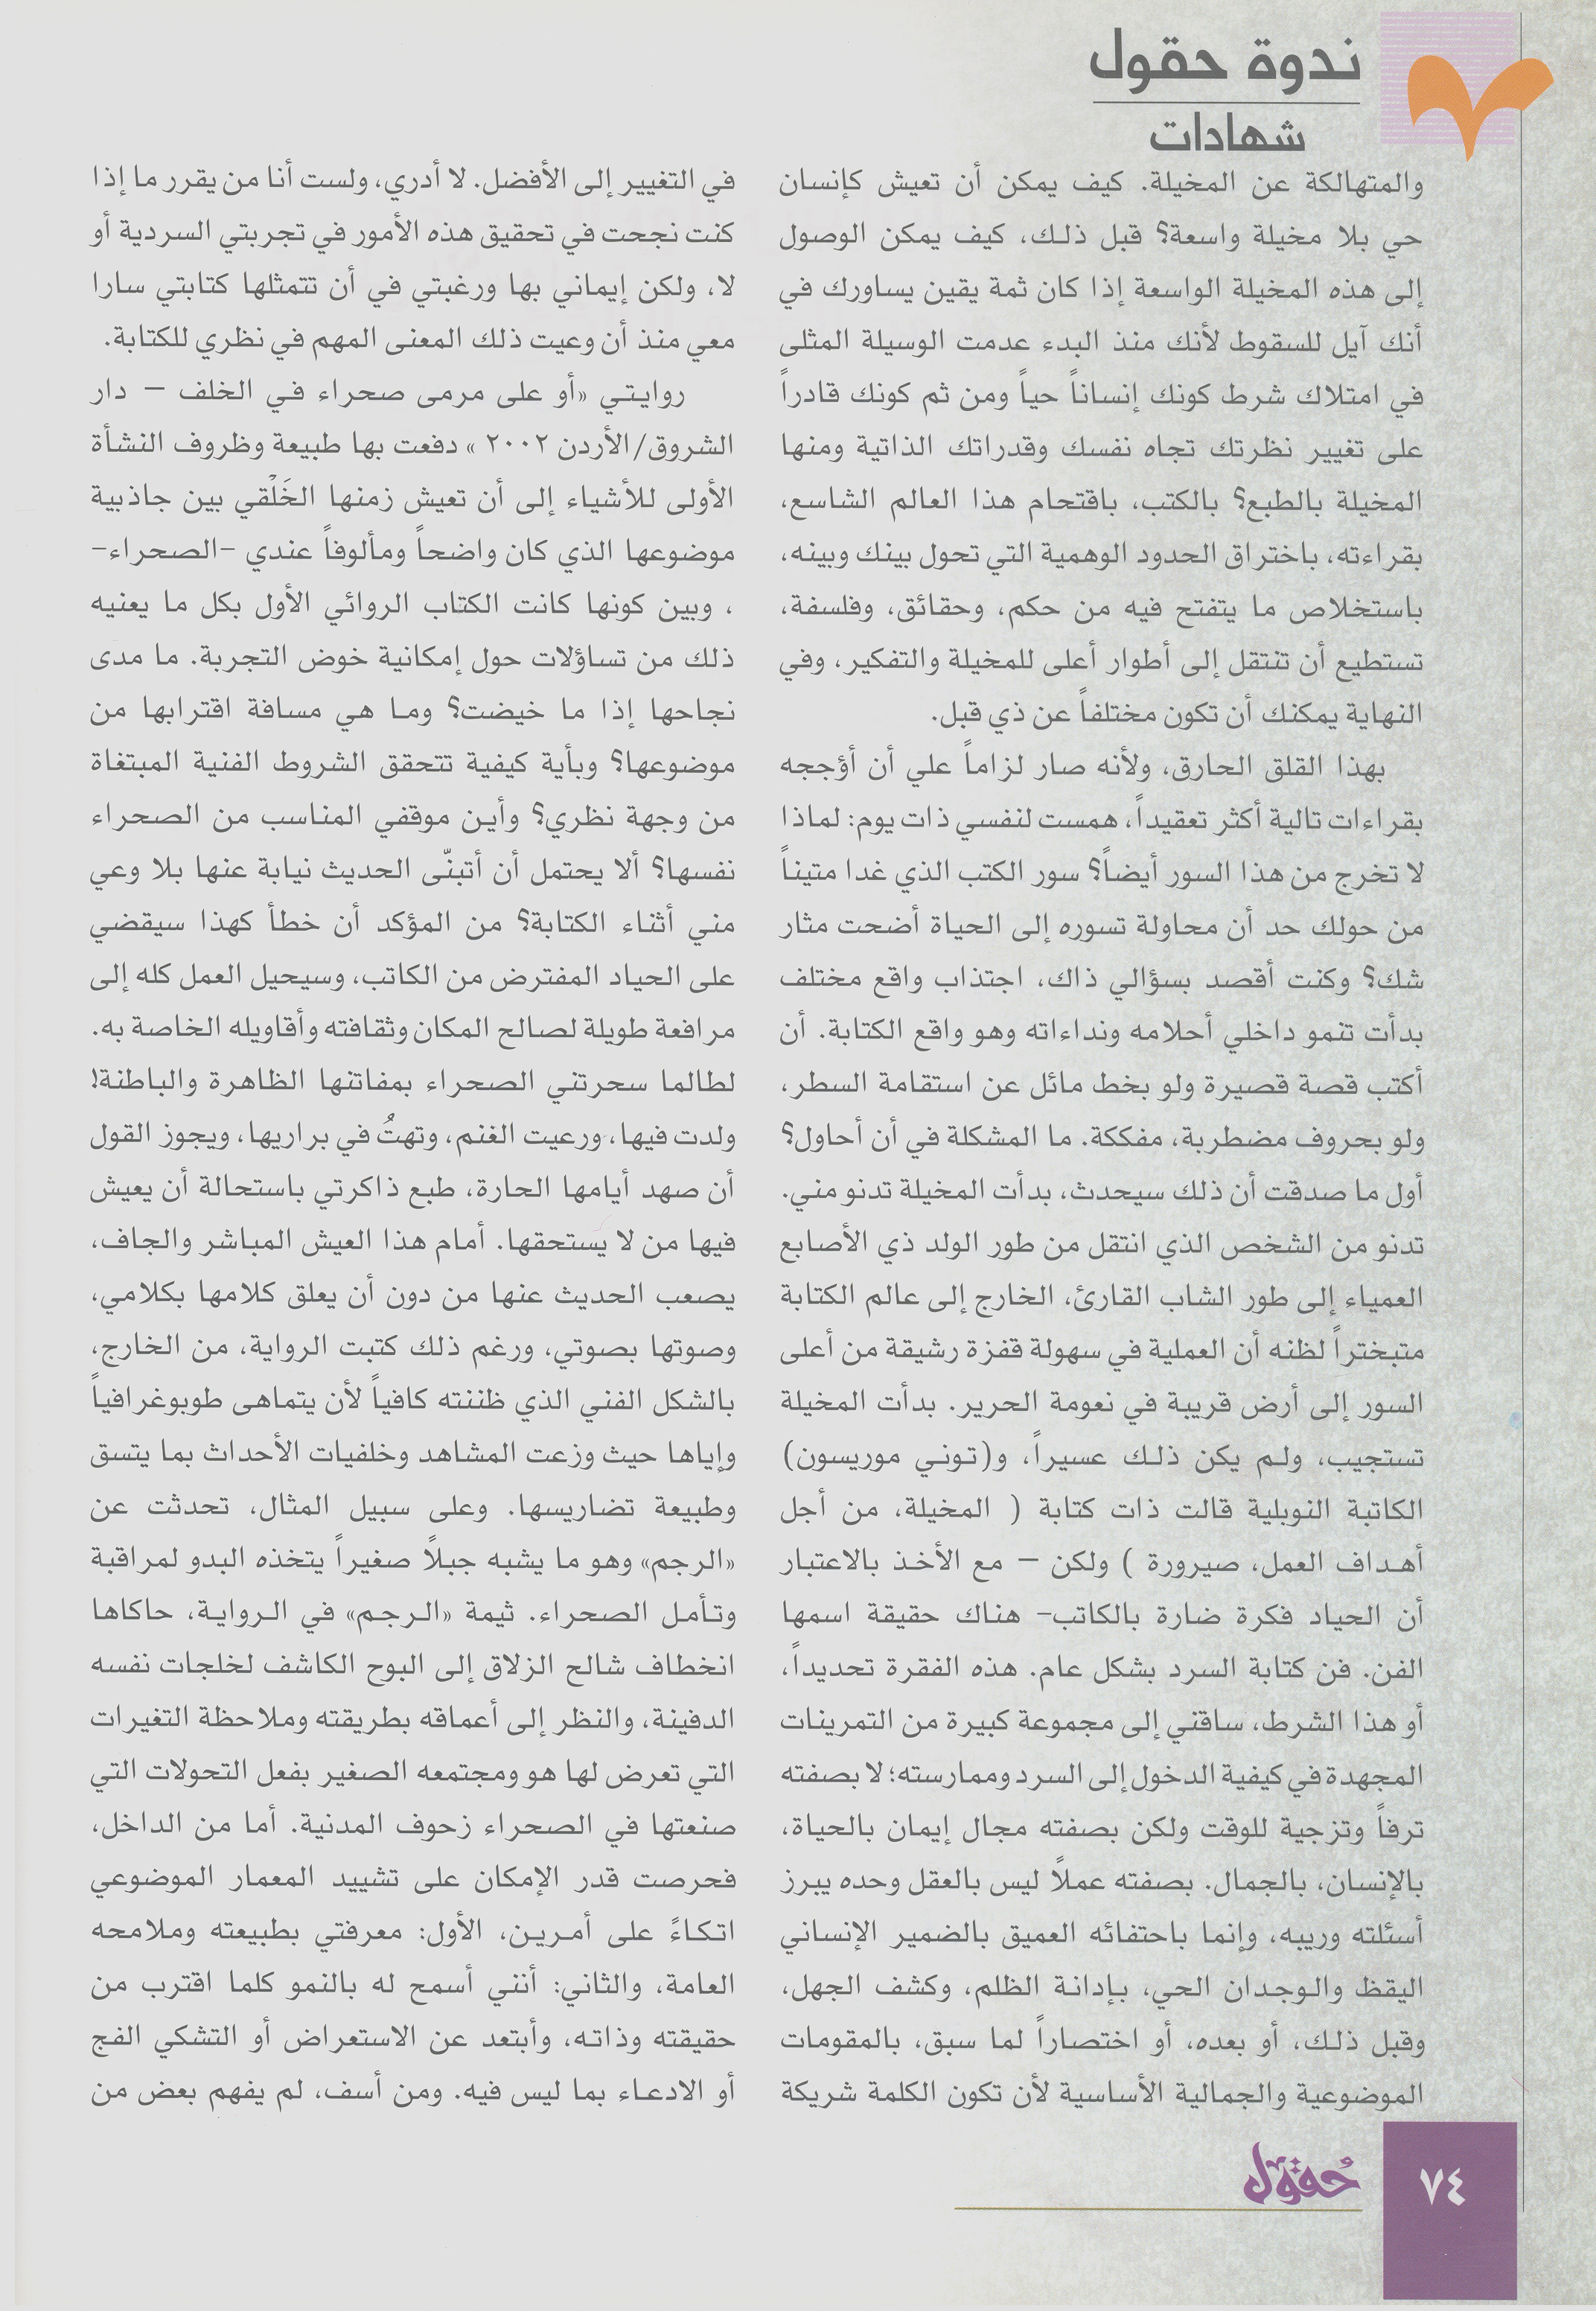 ندوة حقول
شهادات
والمتهالكة عن المخيلة. كيف يمكن أن تعيش كإنسان
حي بلا مخيلة واسعة؟ قبل ذلك، كيف يمكن الوصول
إلى هذه المخيلة الواسعة إذا كان ثمة يقين يساورك في
أنك آيل للسقوط لأنك منذ البدء عدمت الوسيلة المثلى
في امتلاك شرط كونك إنساناً حياً ومن ثم كونك قادراً
على تغيير نظرتك تجاه نفسك وقدراتك الذاتية ومنها
المخيلة بالطبع؟ بالكتب، باقتحام هذا العالم الشاسع،
بقراءته، باختراق الحدود الوهمية التي تحول بينك وبينه،
باستخلاص ما يتفتح فيه من حكم، وحقائق، وفلسفة،
تستطيع أن تنتقل إلى أطوار أعلى للمخيلة والتفكير، وفي
النهاية يمكنك أن تكون مختلفاً عن ذي قبل.
بهذا القلق الحارق، ولأنه صار لزاماً علي أن أؤججه
بقراءات تالية أكثر تعقيداً، همست لنفسي ذات يوم: لماذا
لا تخرج من هذا السور أيضاً؟ سور الكتب الذي غدا متيناً
من حولك حد أن محاولة تسوره إلى الحياة أضحت مثار
شك؟ وكنت أقصد بسؤالي ذاك، اجتذاب واقع مختلف
بدأت تنمو داخلي أحلامه ونداءاته وهو واقع الكتابة. أن
أكتب قصة قصيرة ولو بخط مائل عن استقامة السطر،
ولو بحروف مضطربة، مفككة. ما المشكلة في أن أحاول؟
أول ما صدقت أن ذلك سيحدث، بدأت المخيلة تدنو مني.
تدنو من الشخص الذي انتقل من طور الولد ذي الأصابع
العمياء إلى طور الشاب القارئ، الخارج إلى عالم الكتابة
متبختراً لظنه أن العملية في سهولة قفزة رشيقة من أعلى
السور إلى أرض قريبة في نعومة الحرير. بدأت المخيلة
تستجيب، ولم يكن ذلك عسيراً، و(توني موريسون)
الكاتبة النوبلية قالت ذات كتابة ( المخيلة، من أجل
أهداف العمل، صيرورة ) ولكن – مع الأخذ بالاعتبار
أن الحياد فكرة ضارة بالكاتب- هناك حقيقة اسمها
الفن. فن كتابة السرد بشكل عام. هذه الفقرة تحديداً،
أو هذا الشرط، ساقني إلى مجموعة كبيرة من التمرينات
المجهدة في كيفية الدخول إلى السرد وممارسته؛ لا بصفته
ترفاً وتزجية للوقت ولكن بصفته مجال إيمان بالحياة،
بالإنسان، بالجمال. بصفته عملاً ليس بالعقل وحده يبرز
أسئلته وريبه، وإنما باحتفائه العميق بالضمير الإنساني
اليقظ والوجدان الحي، بإدانة الظلم، وكشف الجهل،
وقبل ذلك، أو بعده، أو اختصاراً لما سبق، بالمقومات
الموضوعية والجمالية الأساسية لأن تكون الكلمة شريكة
في التغيير إلى الأفضل. لا أدري، ولست أنا من يقرر ما إذا
كنت نجحت في تحقيق هذه الأمور في تجربتي السردية أو
لا، ولكن إيماني بها ورغبتي في أن تتمثلها كتابتي سارا
معي منذ أن وعيت ذلك المعنى المهم في نظري للكتابة.
روايتي «أو على مرمى صحراء في الخلف – دار
الشروق/الأردن ٢٠٠٢ » دفعت بها طبيعة وظروف النشأة
الأولى للأشياء إلى أن تعيش زمنها الخَلْقي بين جاذبية
موضوعها الذي كان واضحاً ومألوفاً عندي -الصحراء-
، وبين كونها كانت الكتاب الروائي الأول بكل ما يعنيه
ذلك من تساؤلات حول إمكانية خوض التجربة. ما مدى
نجاحها إذا ما خيضت؟ وما هي مسافة اقترابها من
موضوعها؟ وبأية كيفية تتحقق الشروط الفنية المبتغاة
من وجهة نظري؟ وأين موقفي المناسب من الصحراء
نفسها؟ ألا يحتمل أن أتبنّى الحديث نيابة عنها بلا وعي
مني أثناء الكتابة؟ من المؤكد أن خطأ كهذا سيقضي
على الحياد المفترض من الكاتب، وسيحيل العمل كله إلى
مرافعة طويلة لصالح المكان وثقافته وأقاويله الخاصة به.
لطالما سحرتني الصحراء بمفاتنها الظاهرة والباطنة!
ولدت فيها، ورعيت الغنم، وتهتُ في براريها، ويجوز القول
أن صهد أيامها الحارة، طبع ذاكرتي باستحالة أن يعيش
فيها من لا يستحقها. أمام هذا العيش المباشر والجاف،
يصعب الحديث عنها من دون أن يعلق كلامها بكلامي،
وصوتها بصوتي، ورغم ذلك كتبت الرواية، من الخارج،
بالشكل الفني الذي ظننته كافياً لأن يتماهى طوبوغرافياً
وإياها حيث وزعت المشاهد وخلفيات الأحداث بما يتسق
وطبيعة تضاريسها. وعلى سبيل المثال، تحدثت عن
«الرجم» وهو ما يشبه جبلاً صغيراً يتخذه البدو لمراقبة
وتأمل الصحراء. ثيمة «الرجم» في الرواية، حاكاها
انخطاف شالح الزلاق إلى البوح الكاشف لخلجات نفسه
الدفينة، والنظر إلى أعماقه بطريقته وملاحظة التغيرات
التي تعرض لها هو ومجتمعه الصغير بفعل التحولات التي
صنعتها في الصحراء زحوف المدنية. أما من الداخل،
فحرصت قدر الإمكان على تشييد المعمار الموضوعي
اتكاءً على أمرين، الأول: معرفتي بطبيعته وملامحه
العامة، والثاني: أنني أسمح له بالنمو كلما اقترب من
حقيقته وذاته، وأبتعد عن الاستعراض أو التشكي الفج
أو الادعاء بما ليس فيه. ومن أسف، لم يفهم بعض من
حُقول
٧٤